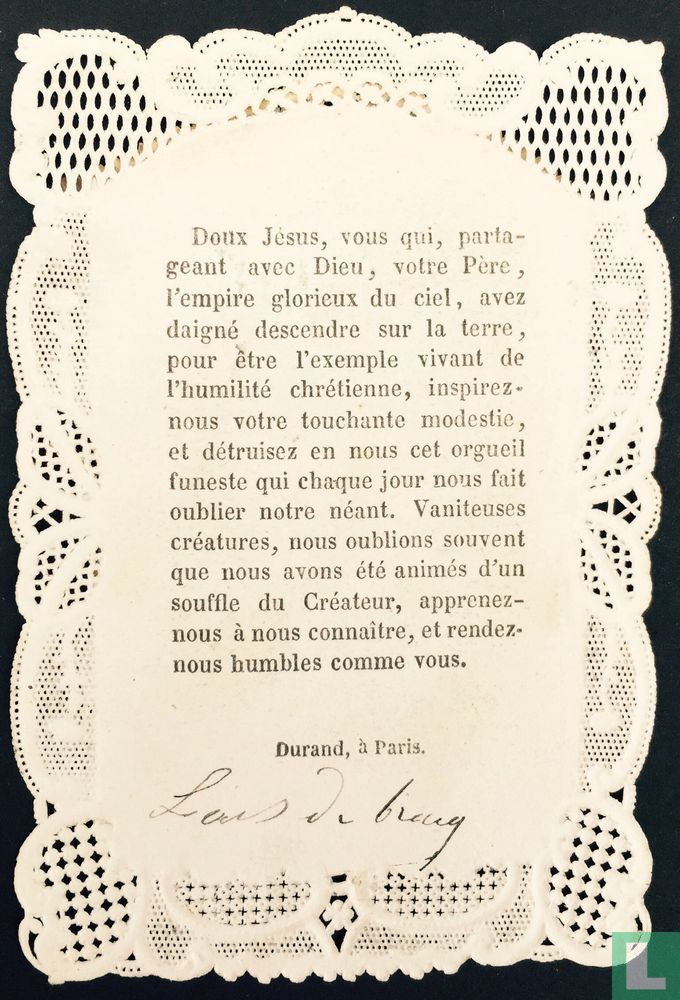 Doux Jésus, vous qui, parta-
geant avec Dieu, votre Père,
l'empire glorieux du ciel, avez
daigné descendre sur la terre,
pour être l'exemple vivant de
l'humilité chrétienne, inspirez-
nous votre touchante modestie,
et détruisez en nous cet orgueil
funeste qui chaque jour nous fait
oublier notre néant. Vaniteuses
créatures, nous oublions souvent
que nous avons été animés d'un
souffle du Créateur, apprenez-
nous à nous connaître, et rendez-
nous humbles comme vous.
Durand, à Paris.
de
L